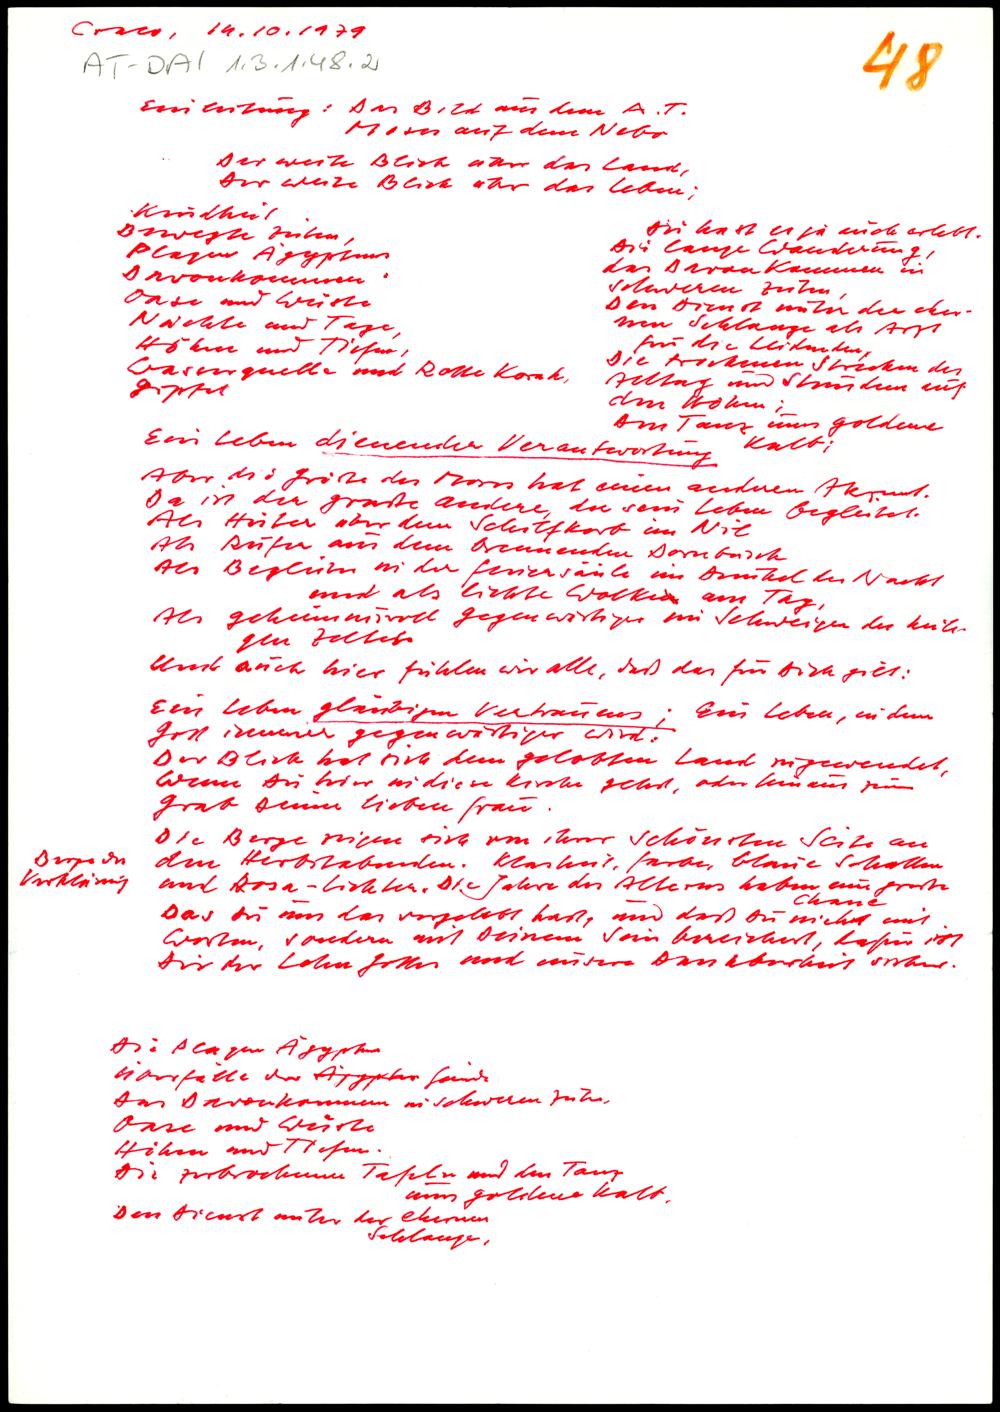 14.10.1979
48
AT-DAI 1.3.1.48.2
Einleitung: Das Bild aus dem A.T.
Moses auf dem Nebo
Der weite Blick über das Land,
Der weite Blick über das Leben;
Kindheit
Bewegte Zeiten,
Plagen Ägyptens
Davonkommen
Oase und Wüste
Nächte und Tage,
Höhen und Tiefen,
Wasserquelle und Rotte Korah,
Gipfel
Du hast es ja auch erlebt.
Die lange Wanderung,
das Davonkommen in
schweren Zeiten,
Den Dienst unter der eher-
nen Schlange als Arzt
für die Leidenden,
Die trockenen Strecken des
Alltag und Stunden auf
den Höhen;
Den Tanz ums goldene
Kalb;
Ein Leben dienender Verantwortung
Aber die Größe des Moses hat einen anderen Akzent.
Da ist der große Andere, der sein Leben begleitet.
Als Hüter über dem Schilfkorb im Nil
Als Rufer aus dem brennenden Dornbusch
Als Begleiter in der Feuersäule im Dunkel der Nacht
und als lichte Wolke am Tag,
Als geheimnisvoll Gegenwärtiger im Schweigen des heili-
gen Zeltes
Und auch hier fühlen wir alle, daß das für Dich gilt:
Ein Leben gläubigen Vertrauens; Ein Leben, in dem
Gott immer gegenwärtiger wird.
Der Blick hat sich dem gelobten Land zugewendet,
Wenn Du hier in diese Kirche gehst, oder hinaus zum
Grab Deiner lieben Frau.
Die Berge zeigen sich von ihrer schönsten Seite an
Berge der
Verklärung
den Herbstabenden. Klarheit, Farben, blaue Schatten
und Rosa-Lichter. Die Jahre des Alterns haben eine große
Chance
Das Du uns das vorgelebt hast, und daß Du nicht mit
Worten, sondern mit Deinem Sein bereichert, dafür ist
Dir der Lohn Gottes und unsere Dankbarkeit sicher.
Die Plagen Ägyptens
Überfälle der Ägypter Feinde
Das Davonkommen in schweren Zeiten.
Oase und Wüste
Höhen und Tiefen.
Die zerbrochenen Tafeln und den Tanz
ums goldene Kalb,
Den Dienst unter der ehernen
Schlange,